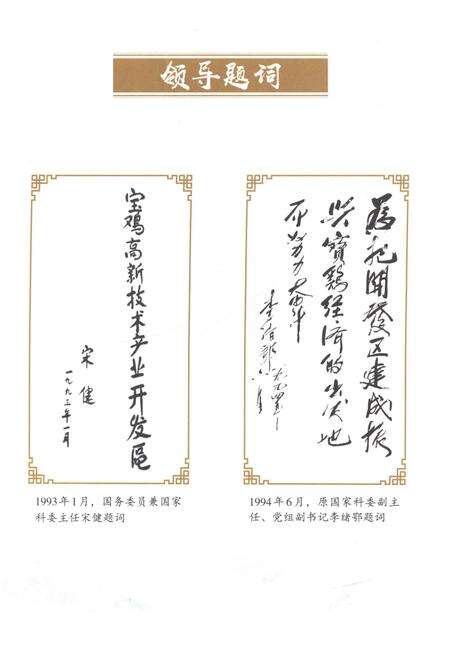 领导题词
宝鸡高新技术产业开发区
宋健
一九九三年一月
为把開發区建成振
兴寳鷄经済的尖兵地
而努力奋斗
李绪鄂
1993年1月，国务委员兼国家
科委主任宋健题词
1994年6月，原国家科委副主
任、党组副书记李绪鄂题词